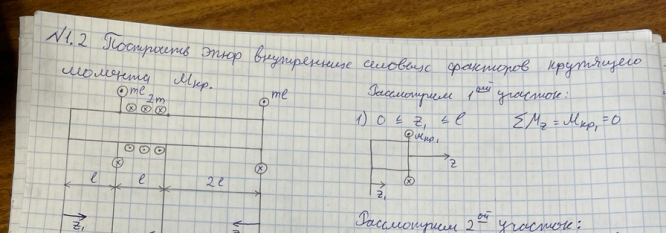 N1.2 Построить эпюр внутренних силовых факторов крутящего
момента Мкр.
ml
2m
ml
l
l
2l
z₁
z₁
Рассмотрим 1ый участок:
1) 0 ≤ z₁ ≤ l ΣMz = Mкр₁ = 0
Mкр₁
z
z₁
Рассмотрим 2ой участок: